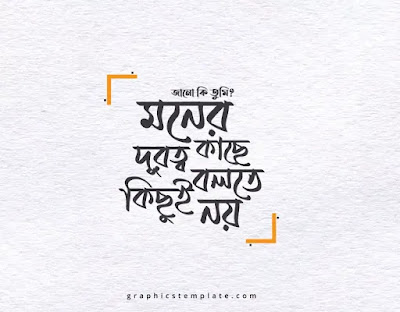 জানো কি তুমি?
মনের
দূরত্ব কাছে
কিছুই বলতে
নয়
graphicstemplate.com